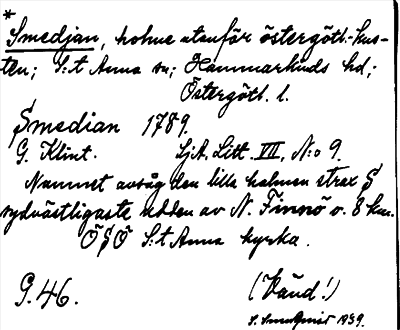 *
Smedjan, holme utanför östergötl. kus-
ten; S:t Anna sn; Hammarkinds hd;
Östergötl. l.
Smedian 1789.
G. Klint. Sj.A. Litt. VII, N:o 9.
Namnet avsåg den lilla holmen strax S
sydvästligaste udden av N. Finnö o. 8 km.
ÖSÖ S:t Anna kyrka.
G. 46. (Vänd!)
1939.